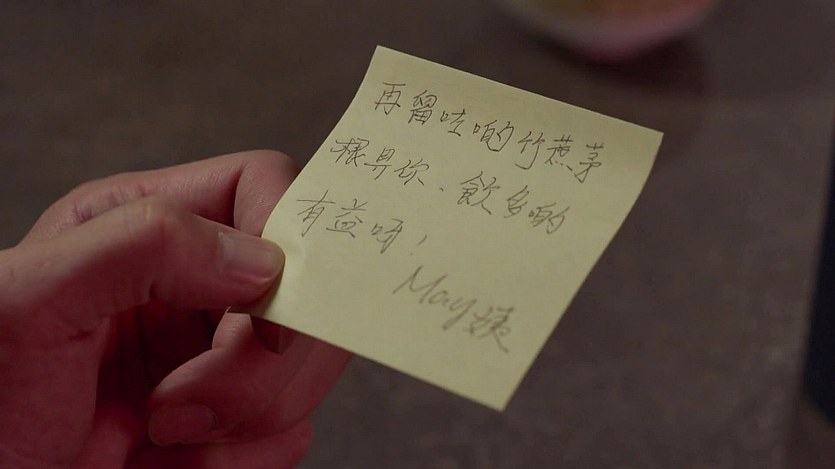 再留咗啲竹蔗茅
根畀你、飲多啲
有益呀！
May姨